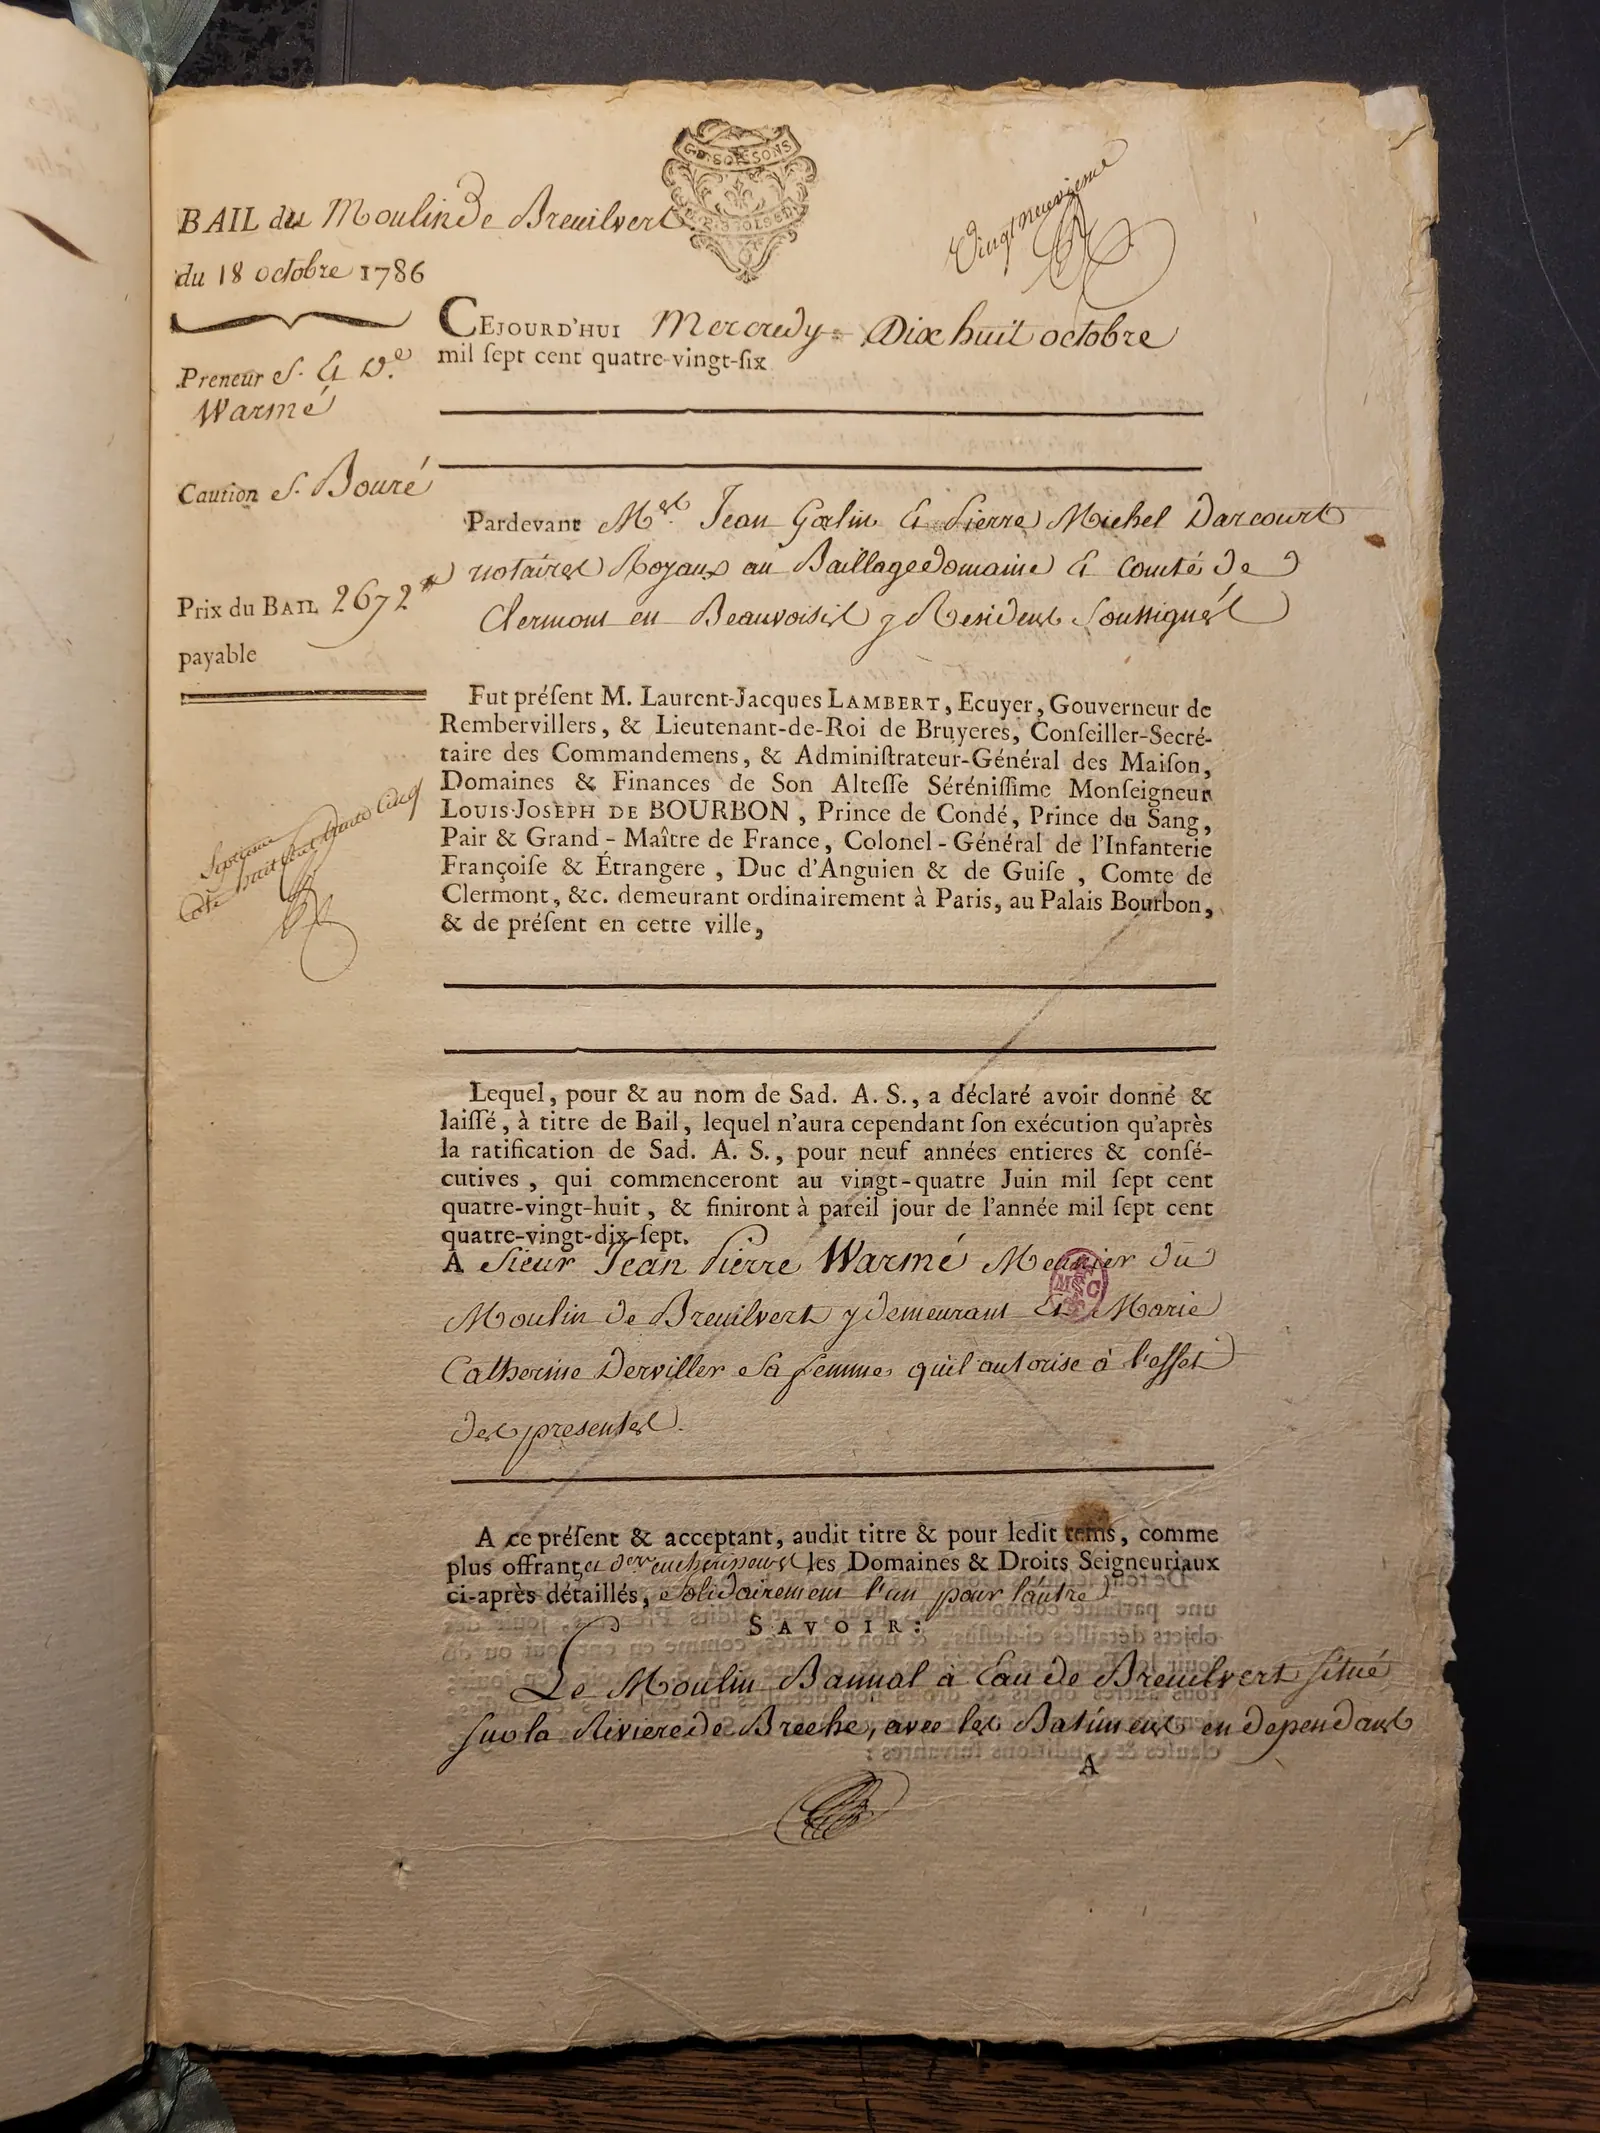 G. D. SOISSONS
BAIL du Moulin De Breuilvert
du 18 octobre 1786
Vingt neuvieme
Preneur S. Et De.
Warmé
Caution S. Bouré
Prix du BAIL 2672
payable
Septieme
Cote huit cent trente Cinq
CEJOURD'HUI Mercredy Dix huit octobre
mil ſept cent quatre-vingt-ſix
Pardevant Mes. Jean Et Pierre Michel Darcourt
notaires Royaux au Baillage Domaine Et Comté De
Clermont en Beauvoisis y Residens Soussignés
Fut préſent M. Laurent-Jacques LAMBERT, Ecuyer, Gouverneur de
Rembervillers, & Lieutenant-de-Roi de Bruyeres, Conſeiller-Secré-
taire des Commandemens, & Adminiſtrateur-Général des Maiſon,
Domaines & Finances de Son Alteſſe Séréniſſime Monſeigneur
LOUIS-JOSEPH DE BOURBON, Prince de Condé, Prince du Sang,
Pair & Grand-Maître de France, Colonel-Général de l'Infanterie
Françoiſe & Étrangere, Duc d'Anguien & de Guiſe, Comte de
Clermont, &c. demeurant ordinairement à Paris, au Palais Bourbon,
& de préſent en cette ville,
Lequel, pour & au nom de Sad. A. S., a déclaré avoir donné &
laiſſé, à titre de Bail, lequel n'aura cependant ſon exécution qu'après
la ratification de Sad. A. S., pour neuf années entieres & conſé-
cutives, qui commenceront au vingt-quatre Juin mil ſept cent
quatre-vingt-huit, & finiront à pareil jour de l'année mil ſept cent
quatre-vingt-dix-ſept.
A Sieur Jean Pierre Warmé Meunier Du
Moulin De Breuilvert y demeurant Et Marie
Catherine Derviller Sa femme, qu'il autorise à l'effet
Des presentes.
A ce préſent & acceptant, audit titre & pour ledit tems, comme
plus offrant et der encherisseurs les Domaines & Droits Seigneuriaux
ci-après détaillés, Solidairement l'un pour l'autre
SAVOIR:
Le Moulin Bannal à Eau De Breuilvert situé
sur la Riviere De Breche, avec les Batimens en dependans
A